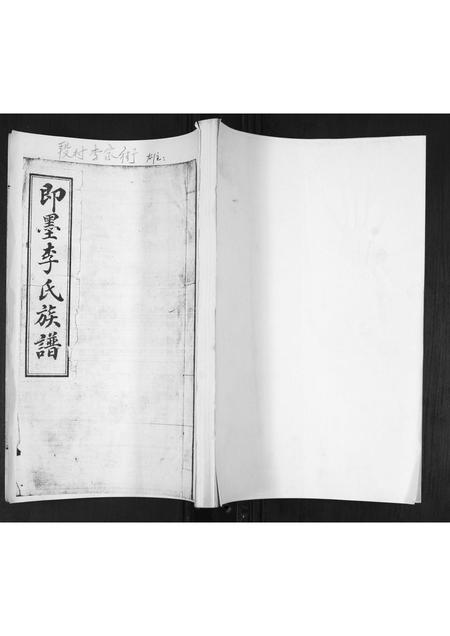 段村李家街
即墨李氏族譜